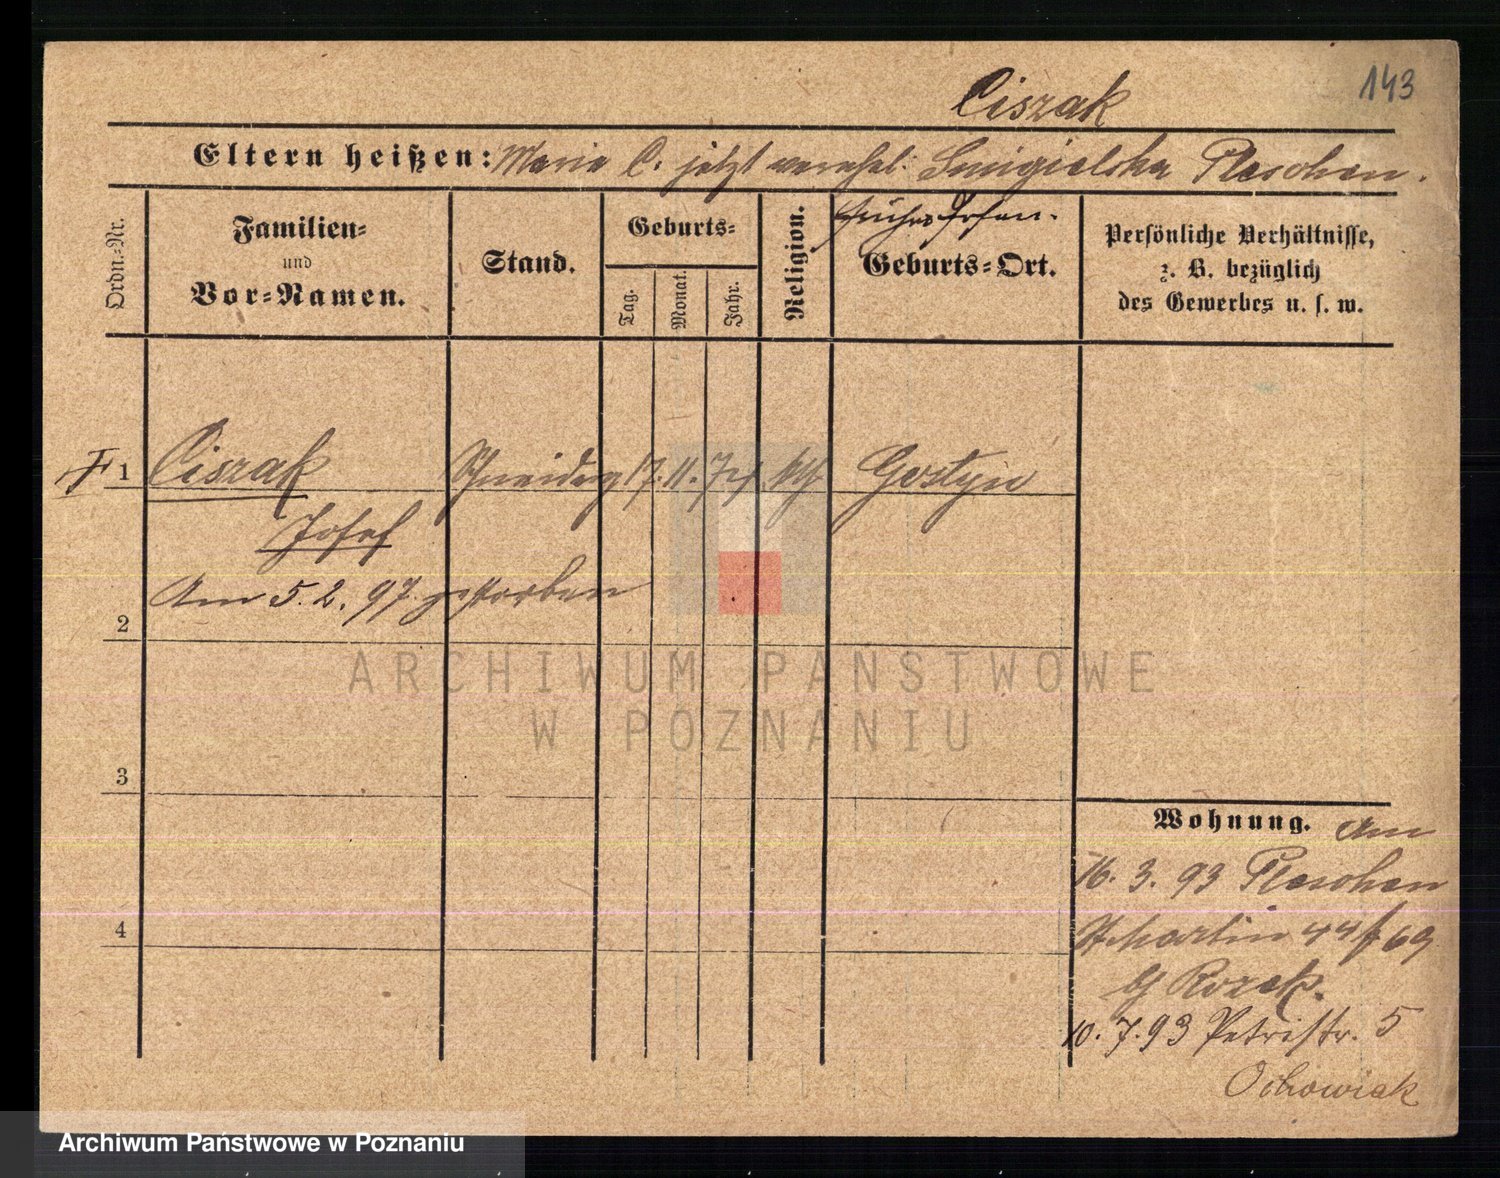 143
Ciszak
Eltern heißen: Marie C. jetzt verehel. Smigielska Pleschen.
früher Posen.
Ordn.-Nr.
Familien-
und
Vor-Namen.
Stand.
Geburts-
Tag.
Monat.
Jahr.
Religion.
Geburts-Ort.
Persönliche Verhältnisse,
z. B. bezüglich
des Gewerbes u. s. w.
1 Ciszak Schneider 17. 11. 74 kth Gostyn
Josef
Am 5. 2. 97 gestorben
2
3
4
ARCHIWUM PAŃSTWOWE
W POZNANIU
Wohnung. Am
16. 3. 93 Pleschen
St Martin 44 69
Rozek.
10. 7. 93 Petristr. 5
Ochowiak
Archiwum Państwowe w Poznaniu